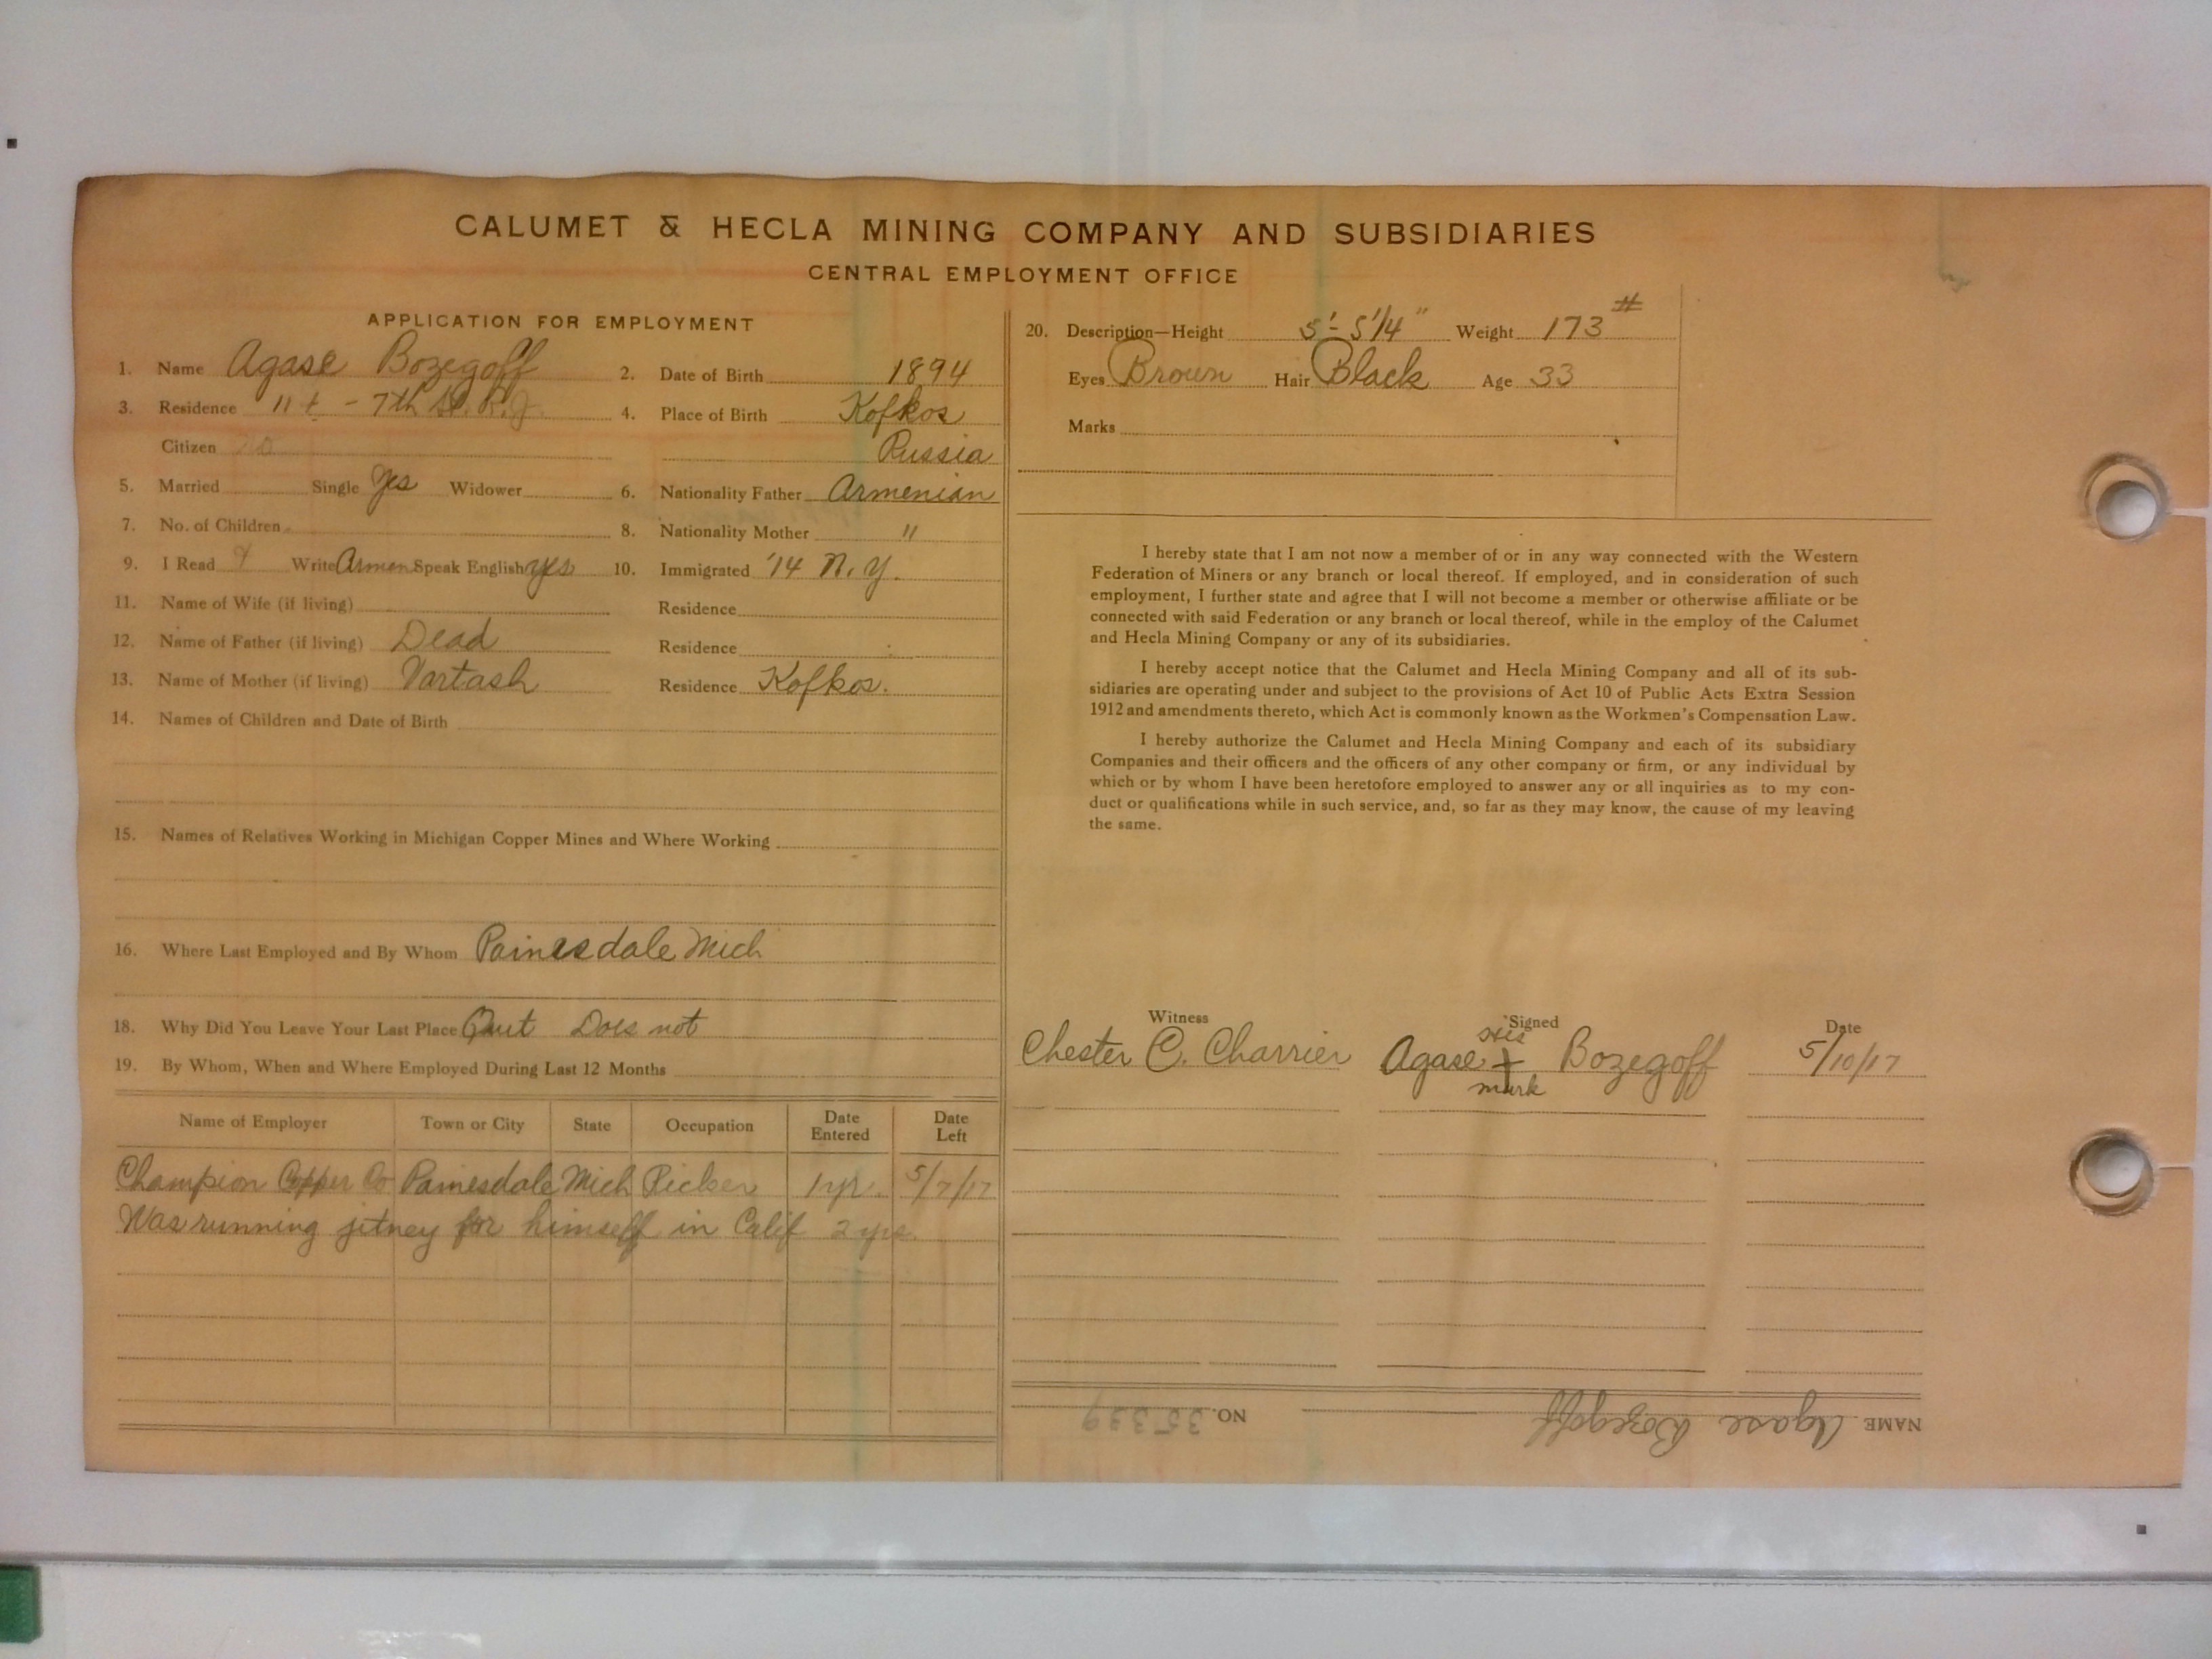 CALUMET & HECLA MINING COMPANY AND SUBSIDIARIES
CENTRAL EMPLOYMENT OFFICE
APPLICATION FOR EMPLOYMENT
1. Name Agase Bozegoff 2. Date of Birth 1894
3. Residence 7th St. 4. Place of Birth Kofkos
Citizen Russia
5. Married Single Yes Widower 6. Nationality Father Armenian
7. No. of Children 8. Nationality Mother "
9. I Read Write Armen Speak English yes 10. Immigrated '14 N.Y.
11. Name of Wife (if living) Residence
12. Name of Father (if living) Dead Residence
13. Name of Mother (if living) Vartash Residence Kofkos.
14. Names of Children and Date of Birth
15. Names of Relatives Working in Michigan Copper Mines and Where Working
16. Where Last Employed and By Whom Painesdale Mich
18. Why Did You Leave Your Last Place Quit Does not
19. By Whom, When and Where Employed During Last 12 Months
Name of Employer Town or City State Occupation Date Entered Date Left
Champion Copper Co Painesdale Mich Picker 1 yr. 5/7/17
Was running jitney for himself in Calif 2 yrs.
20. Description—Height 5'- 5 1/4" Weight 173#
Eyes Brown Hair Black Age 33
Marks
I hereby state that I am not now a member of or in any way connected with the Western
Federation of Miners or any branch or local thereof. If employed, and in consideration of such
employment, I further state and agree that I will not become a member or otherwise affiliate or be
connected with said Federation or any branch or local thereof, while in the employ of the Calumet
and Hecla Mining Company or any of its subsidiaries.
I hereby accept notice that the Calumet and Hecla Mining Company and all of its sub-
sidiaries are operating under and subject to the provisions of Act 10 of Public Acts Extra Session
1912 and amendments thereto, which Act is commonly known as the Workmen's Compensation Law.
I hereby authorize the Calumet and Hecla Mining Company and each of its subsidiary
Companies and their officers and the officers of any other company or firm, or any individual by
which or by whom I have been heretofore employed to answer any or all inquiries as to my con-
duct or qualifications while in such service, and, so far as they may know, the cause of my leaving
the same.
Witness Signed Date
his
Chester C. Charrier Agase + Bozegoff 5/10/17
mark
NAME Agase Bozegoff NO. 35339